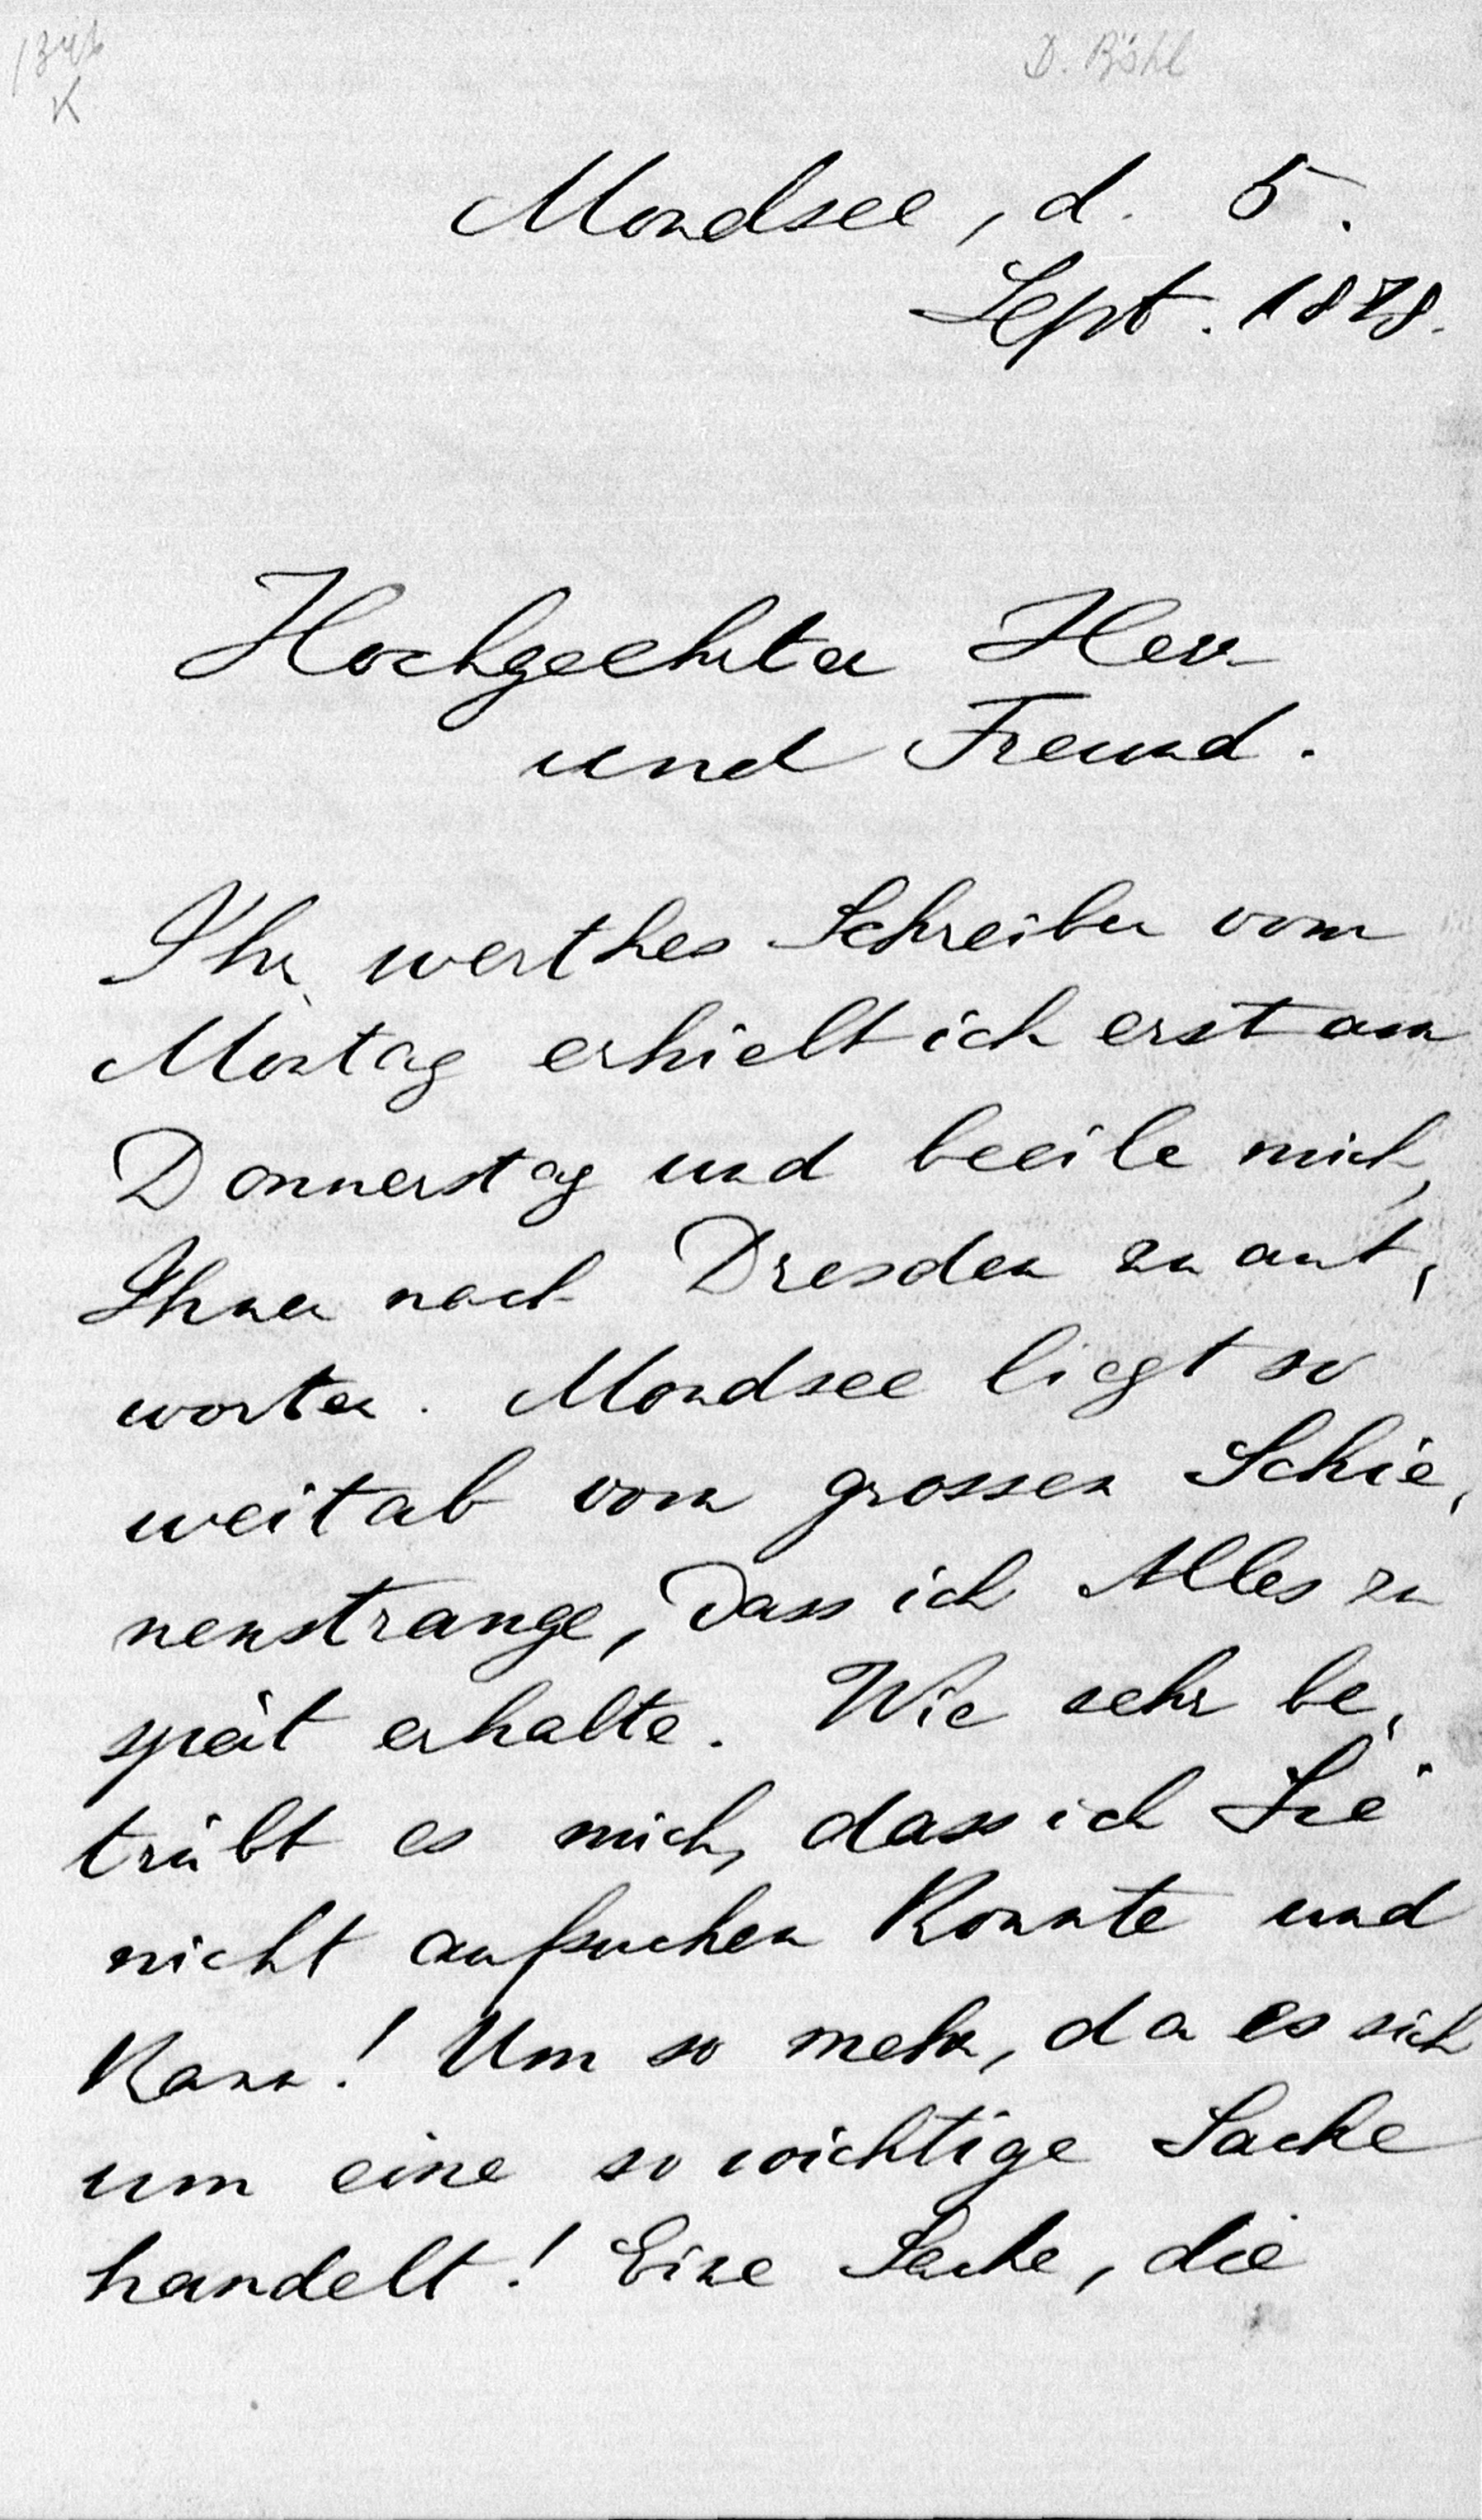 D. Böhl
K
Mondsee, d. 5.
Sept. 1878.
Hochgeehrter Herr
und Freund.
Ihr werthes Schreiben vom
Montag erhielt ich erst am
Donnerstag und beeile mich,
Ihnen nach Dresden zu ant,
worten. Mondsee liegt so
weitab vom grossen Schie,
nenstrange, dass ich Alles zu
spät erhalte. Wie sehr be,
trübt es mich, dass ich Sie
nicht aufsuchen konnte und
kann! Um so mehr, da es sich
um eine so wichtige Sache
handelt! Eine Sache, die